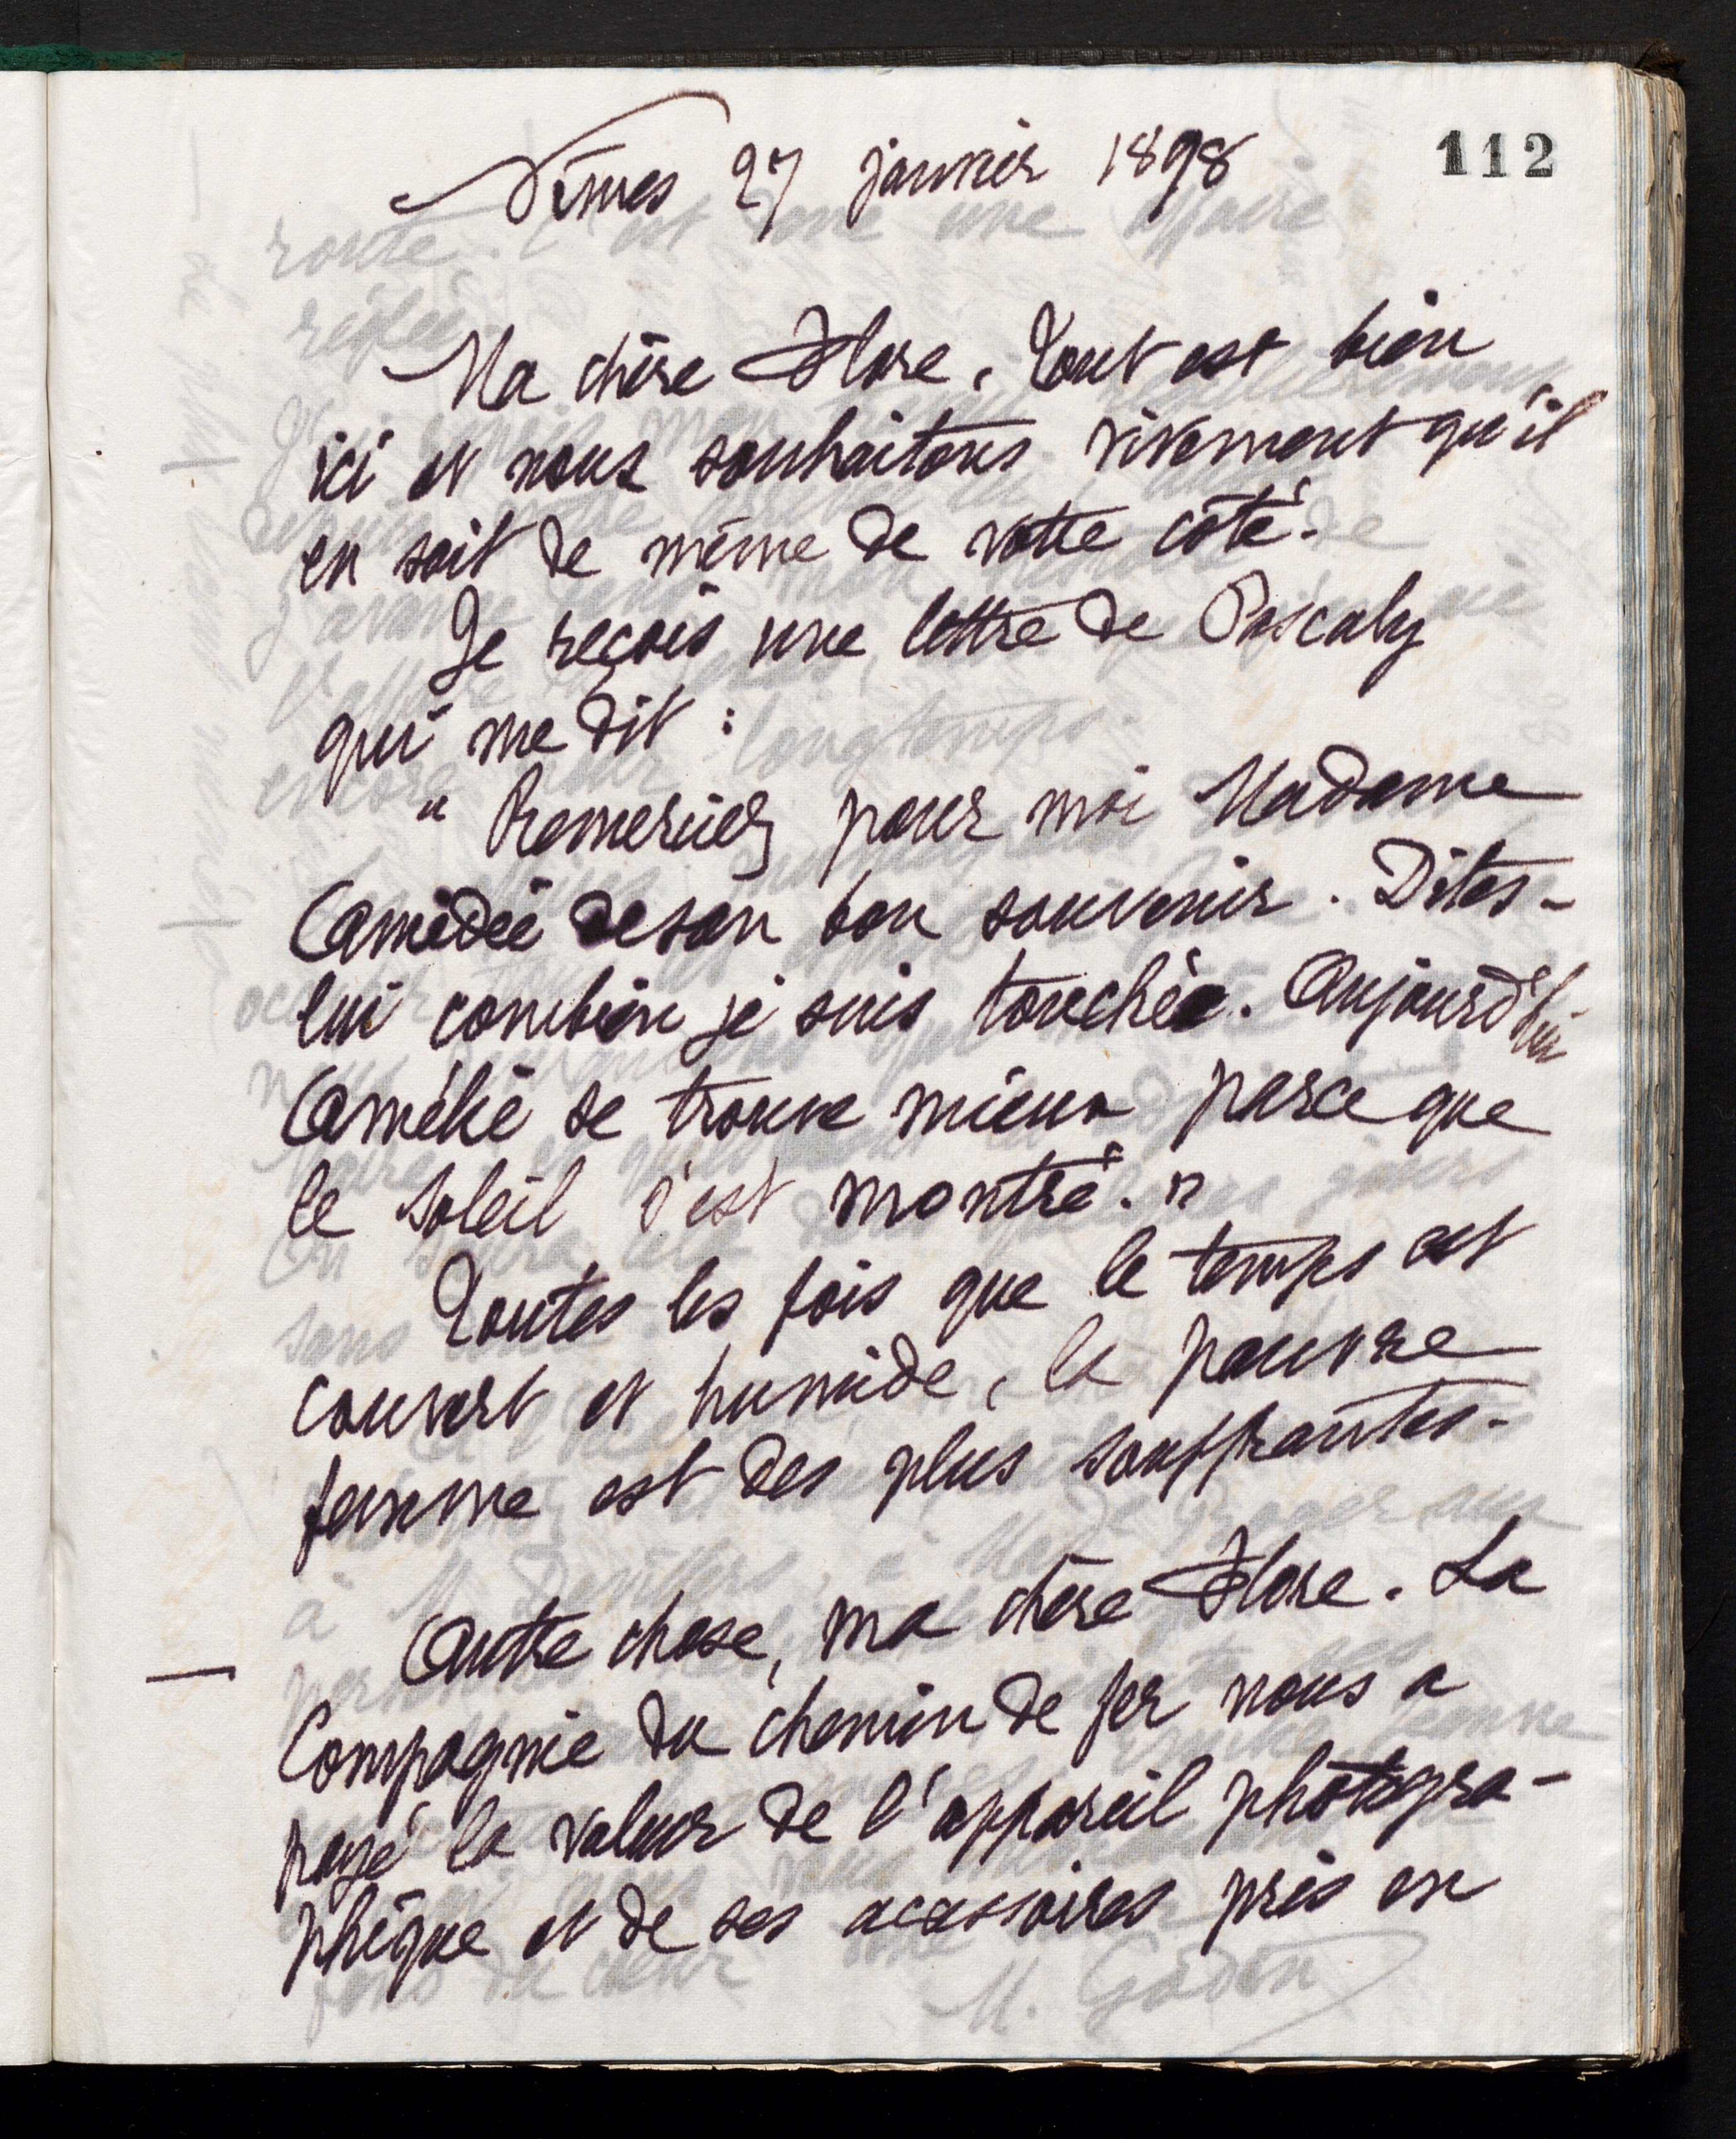 112
Nîmes 27 janvier 1898
Ma chère Flore, Tout est bien
ici et nous souhaitons vivement qu'il
en soit de même de votre côté.
Je reçois une lettre de Pascaly
qui me dit :
" Remerciez pour moi Madame
Amédée de son bon souvenir. Dites-
lui combien je suis touchée. Aujourd'hui
Amélie se trouve mieux parce que
le soleil s'est montré. "
Toutes les fois que le temps est
couvert et humide, la pauvre
femme est des plus souffrantes.
Autre chose, ma chère Flore. La
Compagnie du chemin de fer nous a
payé la valeur de l'appareil photogra-
phique et de ses accessoires pris en
M. Godin